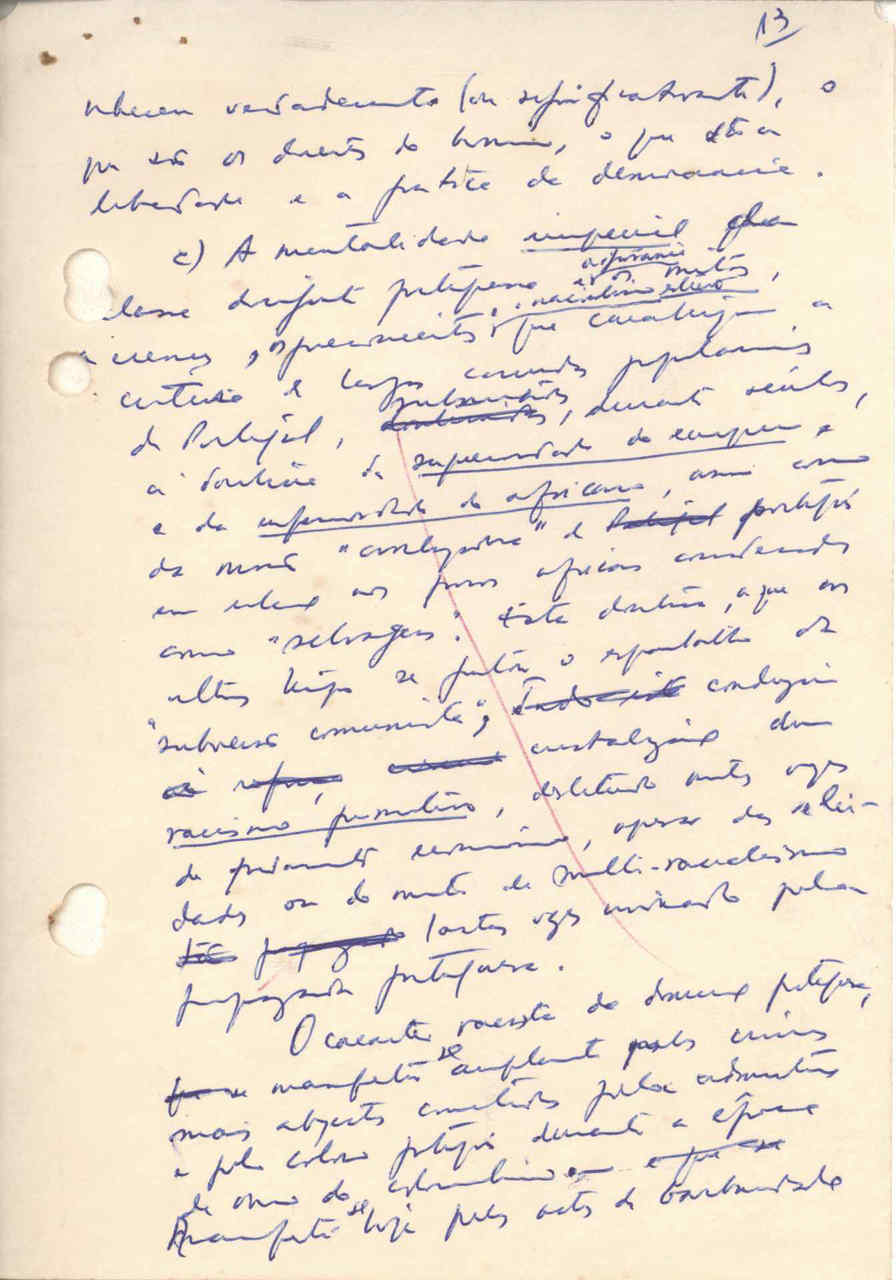 13
verdadeiramente (ou significativamente), o
que são os direitos do homem, o que é a
liberdade e a prática da democracia.
c) A mentalidade imperial da
classe dirigente portuguesa os mitos,
as crenças, os preconceitos, que caracterizam a
de largas camadas populares
de Portugal, durante séculos,
à doutrina da superioridade do europeu
e da inferioridade do africano, assim como
da missão "civilizadora" de Portugal português
em relação aos povos africanos considerados
como "selvagens". Esta doutrina, a que nos
últimos tempos se juntou o espantalho da
"subversão comunista", conduziu
cristalização dum
racismo primitivo, muitas vezes
de fundamento económico, apesar das velei-
dades ou do mito de multi-racialismo
tantas vezes pela
propaganda portuguesa.
O carácter racista do domínio português,
se manifestou-se amplamente pelos crimes
mais abjectos cometidos pelas autoridades
e pelos colonos portugueses durante a época
de ouro do colonialismo e que se
manifesta-se hoje pelos actos de barbaridade